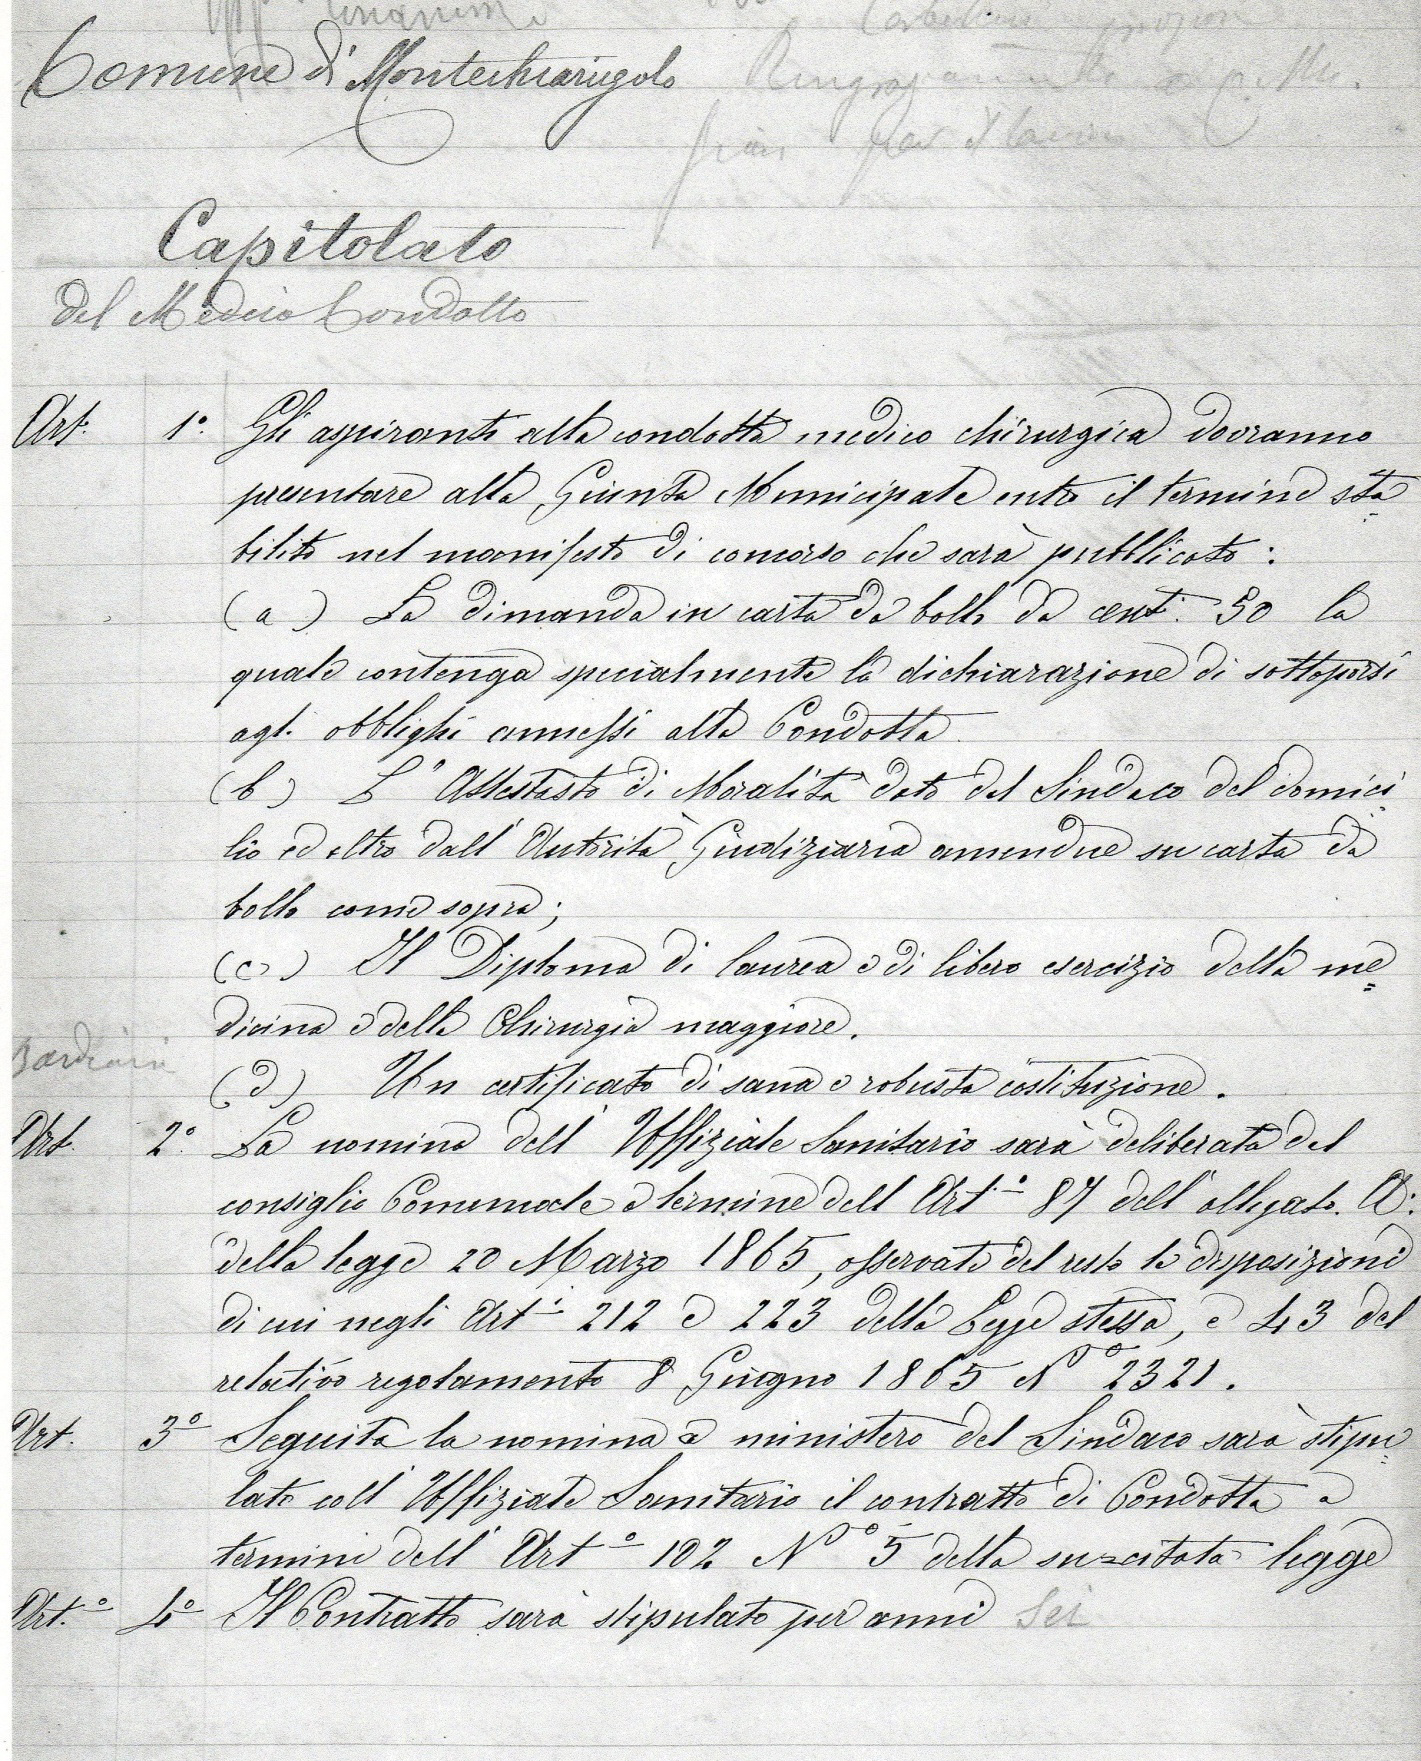 Comune di Montechiarugolo
Capitolato
del Medico Condotto
Art. 1º. Gli aspiranti alla condotta medico chirurgica dovranno
presentare alla Giunta Municipale entro il termine sta=
bilito nel manifesto di concorso che sarà pubblicato:
(a) La dimanda in carta da bollo da cent. 50 la
quale contenga specialmente la dichiarazione di sottoporsi
agl. obblighi annessi alla Condotta
(b) L'Attestato di Moralità dato dal Sindaco del domici=
lio ed altro dall'Autorità Giudiziaria amendue su carta da
bollo come sopra;
(c) Il Diploma di laurea e di libero esercizio della me=
dicina e della Chirurgia maggiore.
(d) Un certificato di sana e robusta costituzione.
Art. 2º. La nomina dell'Uffiziale Sanitario sarà deliberata dal
consiglio Comunale a termine dell Artº 87 dell'allegato. A:
della legge 20 Marzo 1865, osservate del resto le disposizioni
di cui negli Arti 212 e 223 della Legge stessa, e 43 del
relativo regolamento 8 Giugno 1865 Nº 2321.
Art. 3º Seguita la nomina a ministero del Sindaco sarà stipu=
lato coll'Uffiziale Sanitario il contratto di Condotta a
termini dell'Artº 102 Nº 5 della su=citata legge
Art.º 4º Il Contratto sarà stipulato per anni Sei